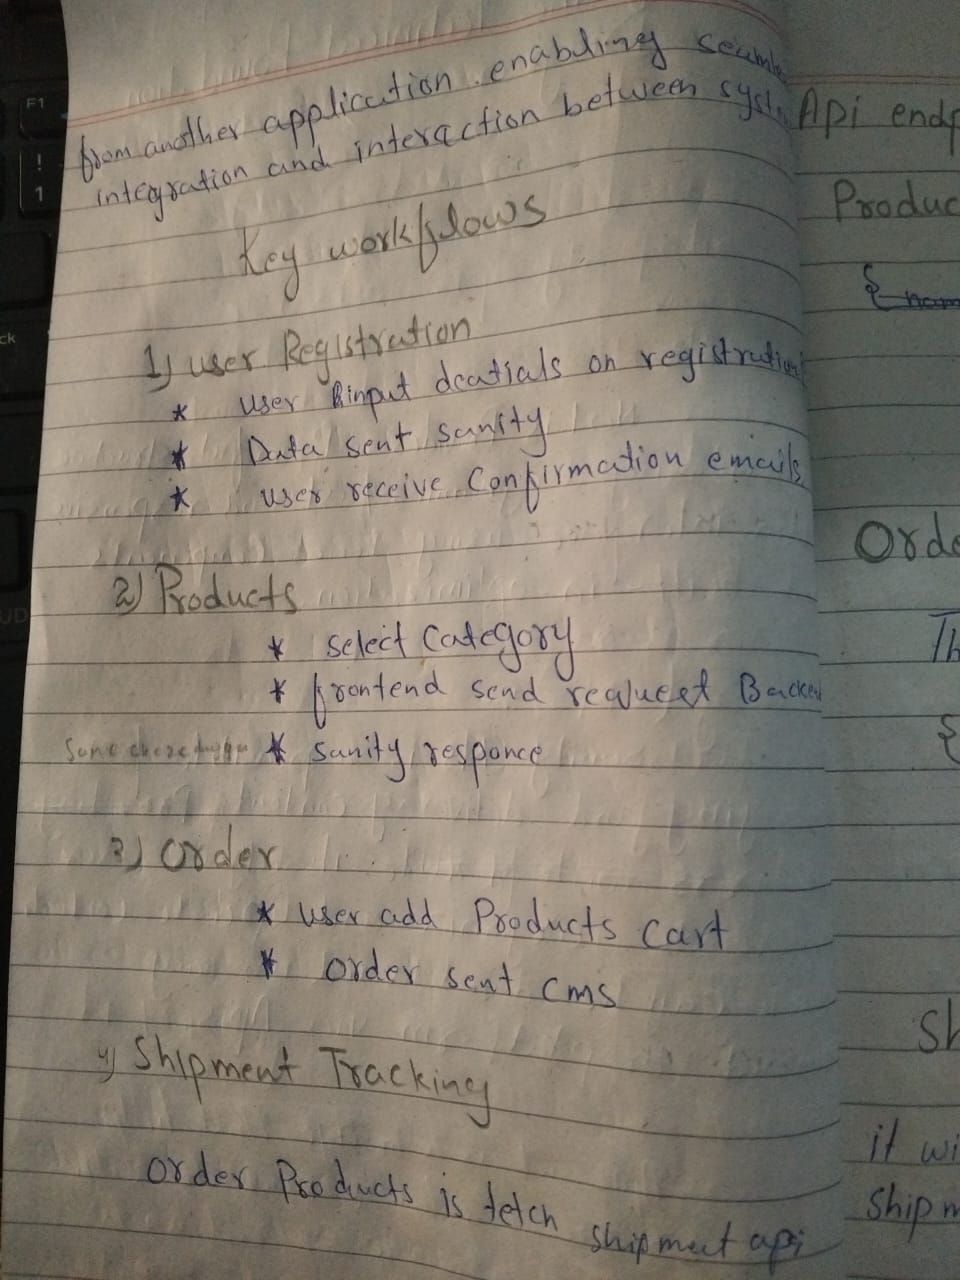 from another application enabling seamle
integration and interaction between syst
Key workflows
1) user Registration
* user input deatials on registration
* Data sent sanity
* user receive Confirmation emails
2) Products
* select Category
* frontend send request Backen
* sanity responce
3) Order
* user add Products Cart
* order sent cms
4) Shipment Tracking
order Products is fetch shipment api
Api endp
Produc
{ nam
Orde
Th
{
Sh
it wi
Shipm
F1
!
1
ck